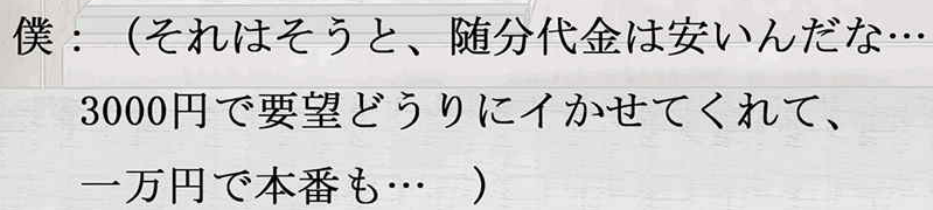 僕：（それはそうと、随分代金は安いんだな…
3000円で要望どうりにイかせてくれて、
一万円で本番も…　）